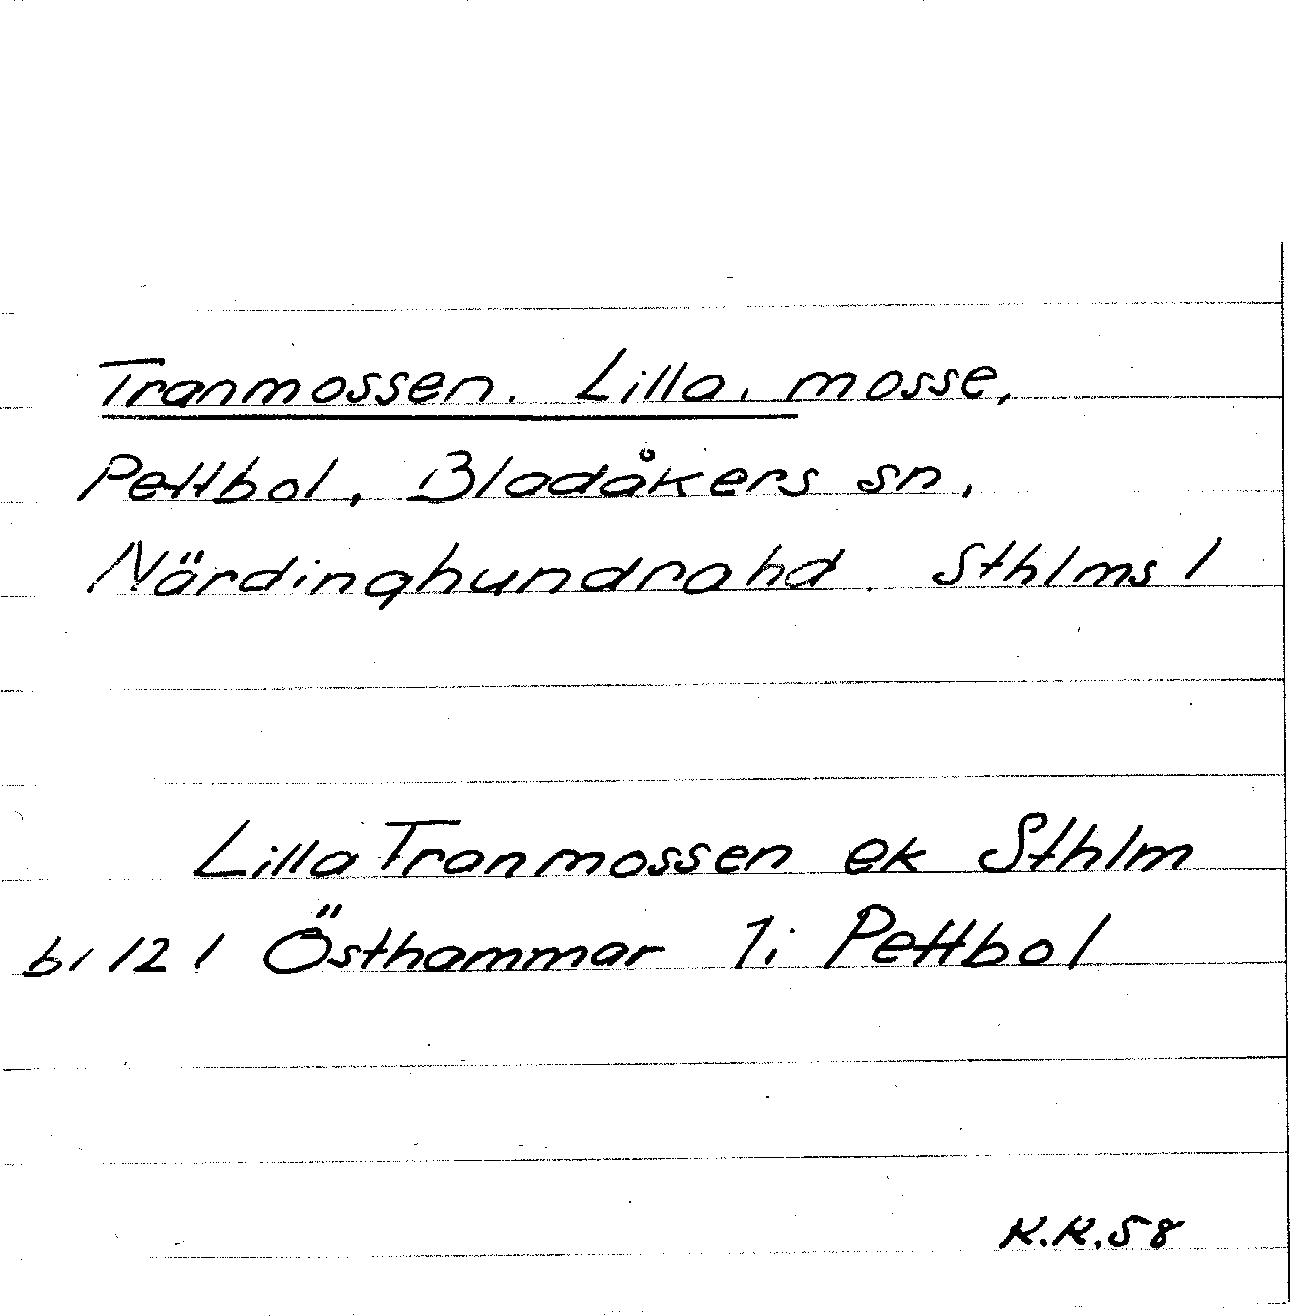 Tranmossen. Lilla. mosse,
Pettbol, Bladåkers sn,
Närdinghundrahd. Sthlms l
Lilla Tranmossen ek Sthlm
bl 121 Östhammar 1: Pettbol
K.K.58